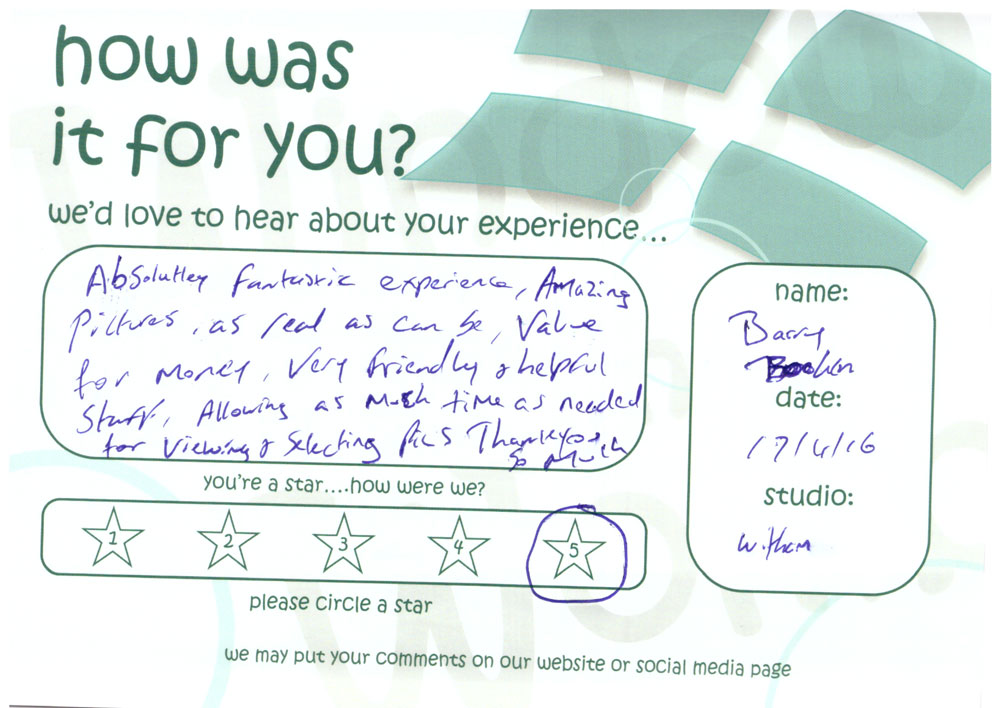 how was
it for you?
we'd love to hear about your experience...
Absolutley fantastic experience, Amazing
Pictures, as real as can be, Value
for money, Very friendly & helpful
Staff, Allowing as Much time as needed
for Viewing & Selecting Pics Thankyou
So Much
you're a star....how were we?
1 2 3 4 5
please circle a star
name:
Barry
date:
17/4/16
studio:
Witham
we may put your comments on our website or social media page